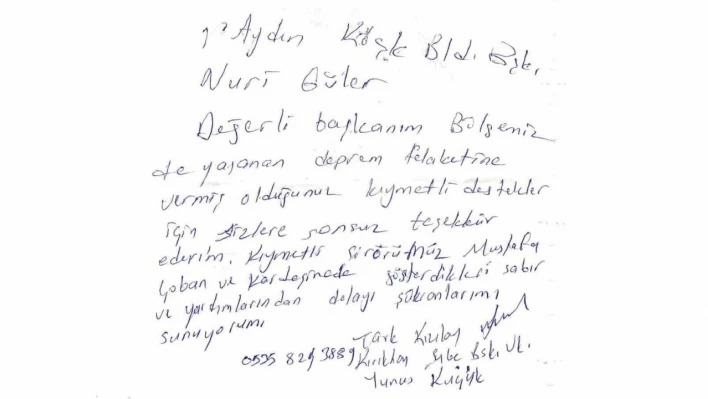 Aydın Köşk Bld. Bşk.
Nuri Güler
Değerli başkanım Bölgeniz
de yaşanan deprem felaketine
vermiş olduğunuz kıymetli destekler
için sizlere sonsuz teşekkür
ederim. Kıymetli şörörümüz Mustafa
Çoban ve kardeşinede gösterdikleri sabır
ve yardımlarından dolayı şükranlarımı
sunuyorum
Türk Kızılay
0535 829 3889 Kırıkhan Şube Bşk. Vk.
Yunus Küçük